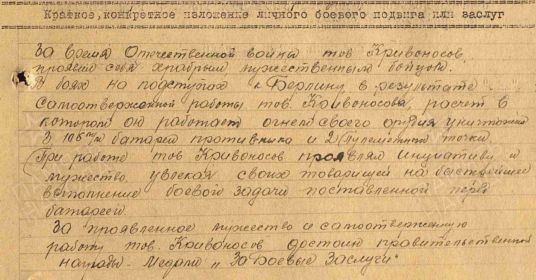 Краткое, конкретное изложение личного боевого подвига или заслуг
За время Отечественной войны тов. Кривоносов
проявил себя храбрым мужественным бойцом.
В боях на подступах к Берлину в результате
самоотверженной работы тов. Кривоносова, расчет в
котором он работает огнем своего орудия уничтожил
3 105 м/м батареи противника и 2 пулеметные точки
При работе тов Кривоносов проявлял инициативу и
мужество увлекая своих товарищей на быстрейшее
выполнение боевой задачи поставленной перед
батареей
За проявленное мужество и самоотверженную
работу тов. Кривоносов достоин правительственной
награды - медали „За Боевые Заслуги"